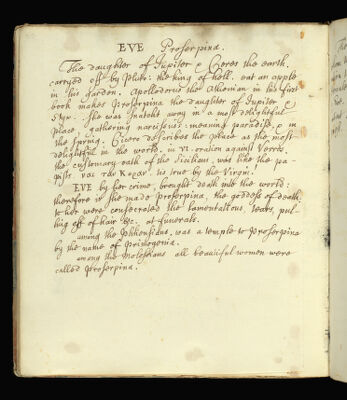 EVE Proserpina.
The daughter of Jupiter & Ceres the earth.
carryed off by Pluto: the king of hell. eat an apple
in his garden. Apollodorus the Athenian in his first
book makes Proserpina the daughter of Jupiter &
Styx. She was snatcht away in a most delightful
place, gathering narcissus: meaning paradise, & in
the spring. Cicero describes the place as the most
delightful in the world. in VI. oration against Verres.
the customary oath of the Sicilians, was like the pa-
pists. ναι την Κοραν. tis true by the Virgin.
EVE by her crime, brought death into the world:
therefore is she made proserpina, the goddess of death.
to her were consecrated the lamentations, tears, pul-
ling off of hair &c. at funerals.
among the Phliensians, was a temple to Proserpina
by the name of Protogonia.
among the Molossians all beautiful women were
called Proserpina.